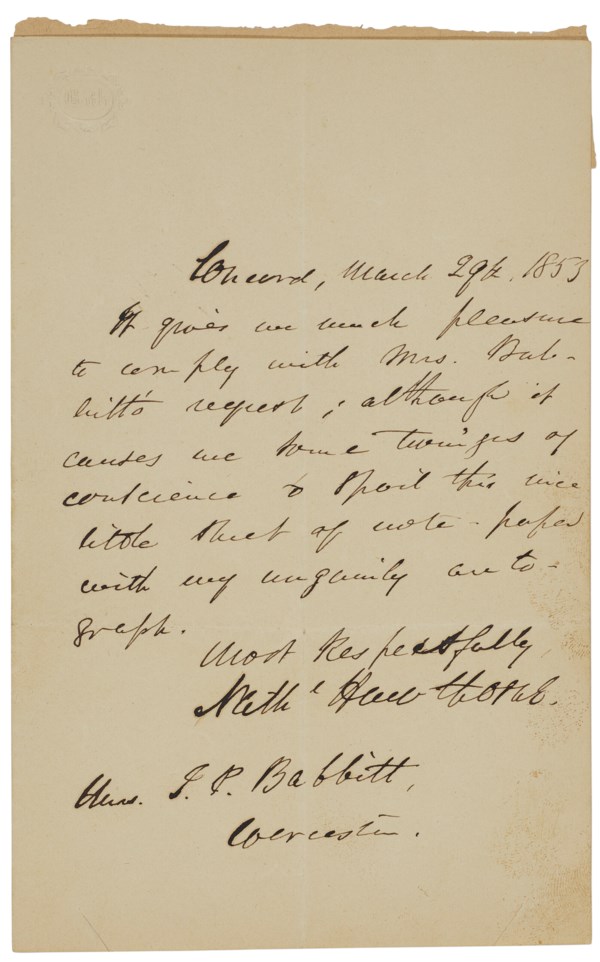 Concord, March 29th, 1853
It gives me much pleasure
to comply with Mrs. Bab-
bitt's request; although it
causes me some twinges of
conscience to spoil this nice
little sheet of note-paper
with my ungainly auto-
graph.
Most Respectfully,
Nathl Hawthorne.
Mrs. J. P. Babbitt,
Worcester.